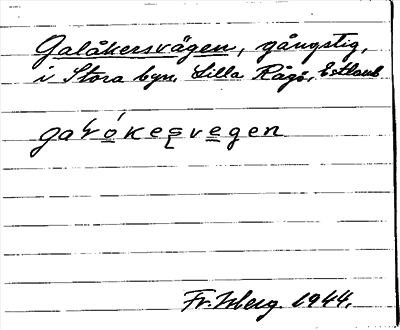 Galåkersvägen, gångstig,
i Stora byn, Lilla Rågö, Estland
gaɫókesvegen
1944.